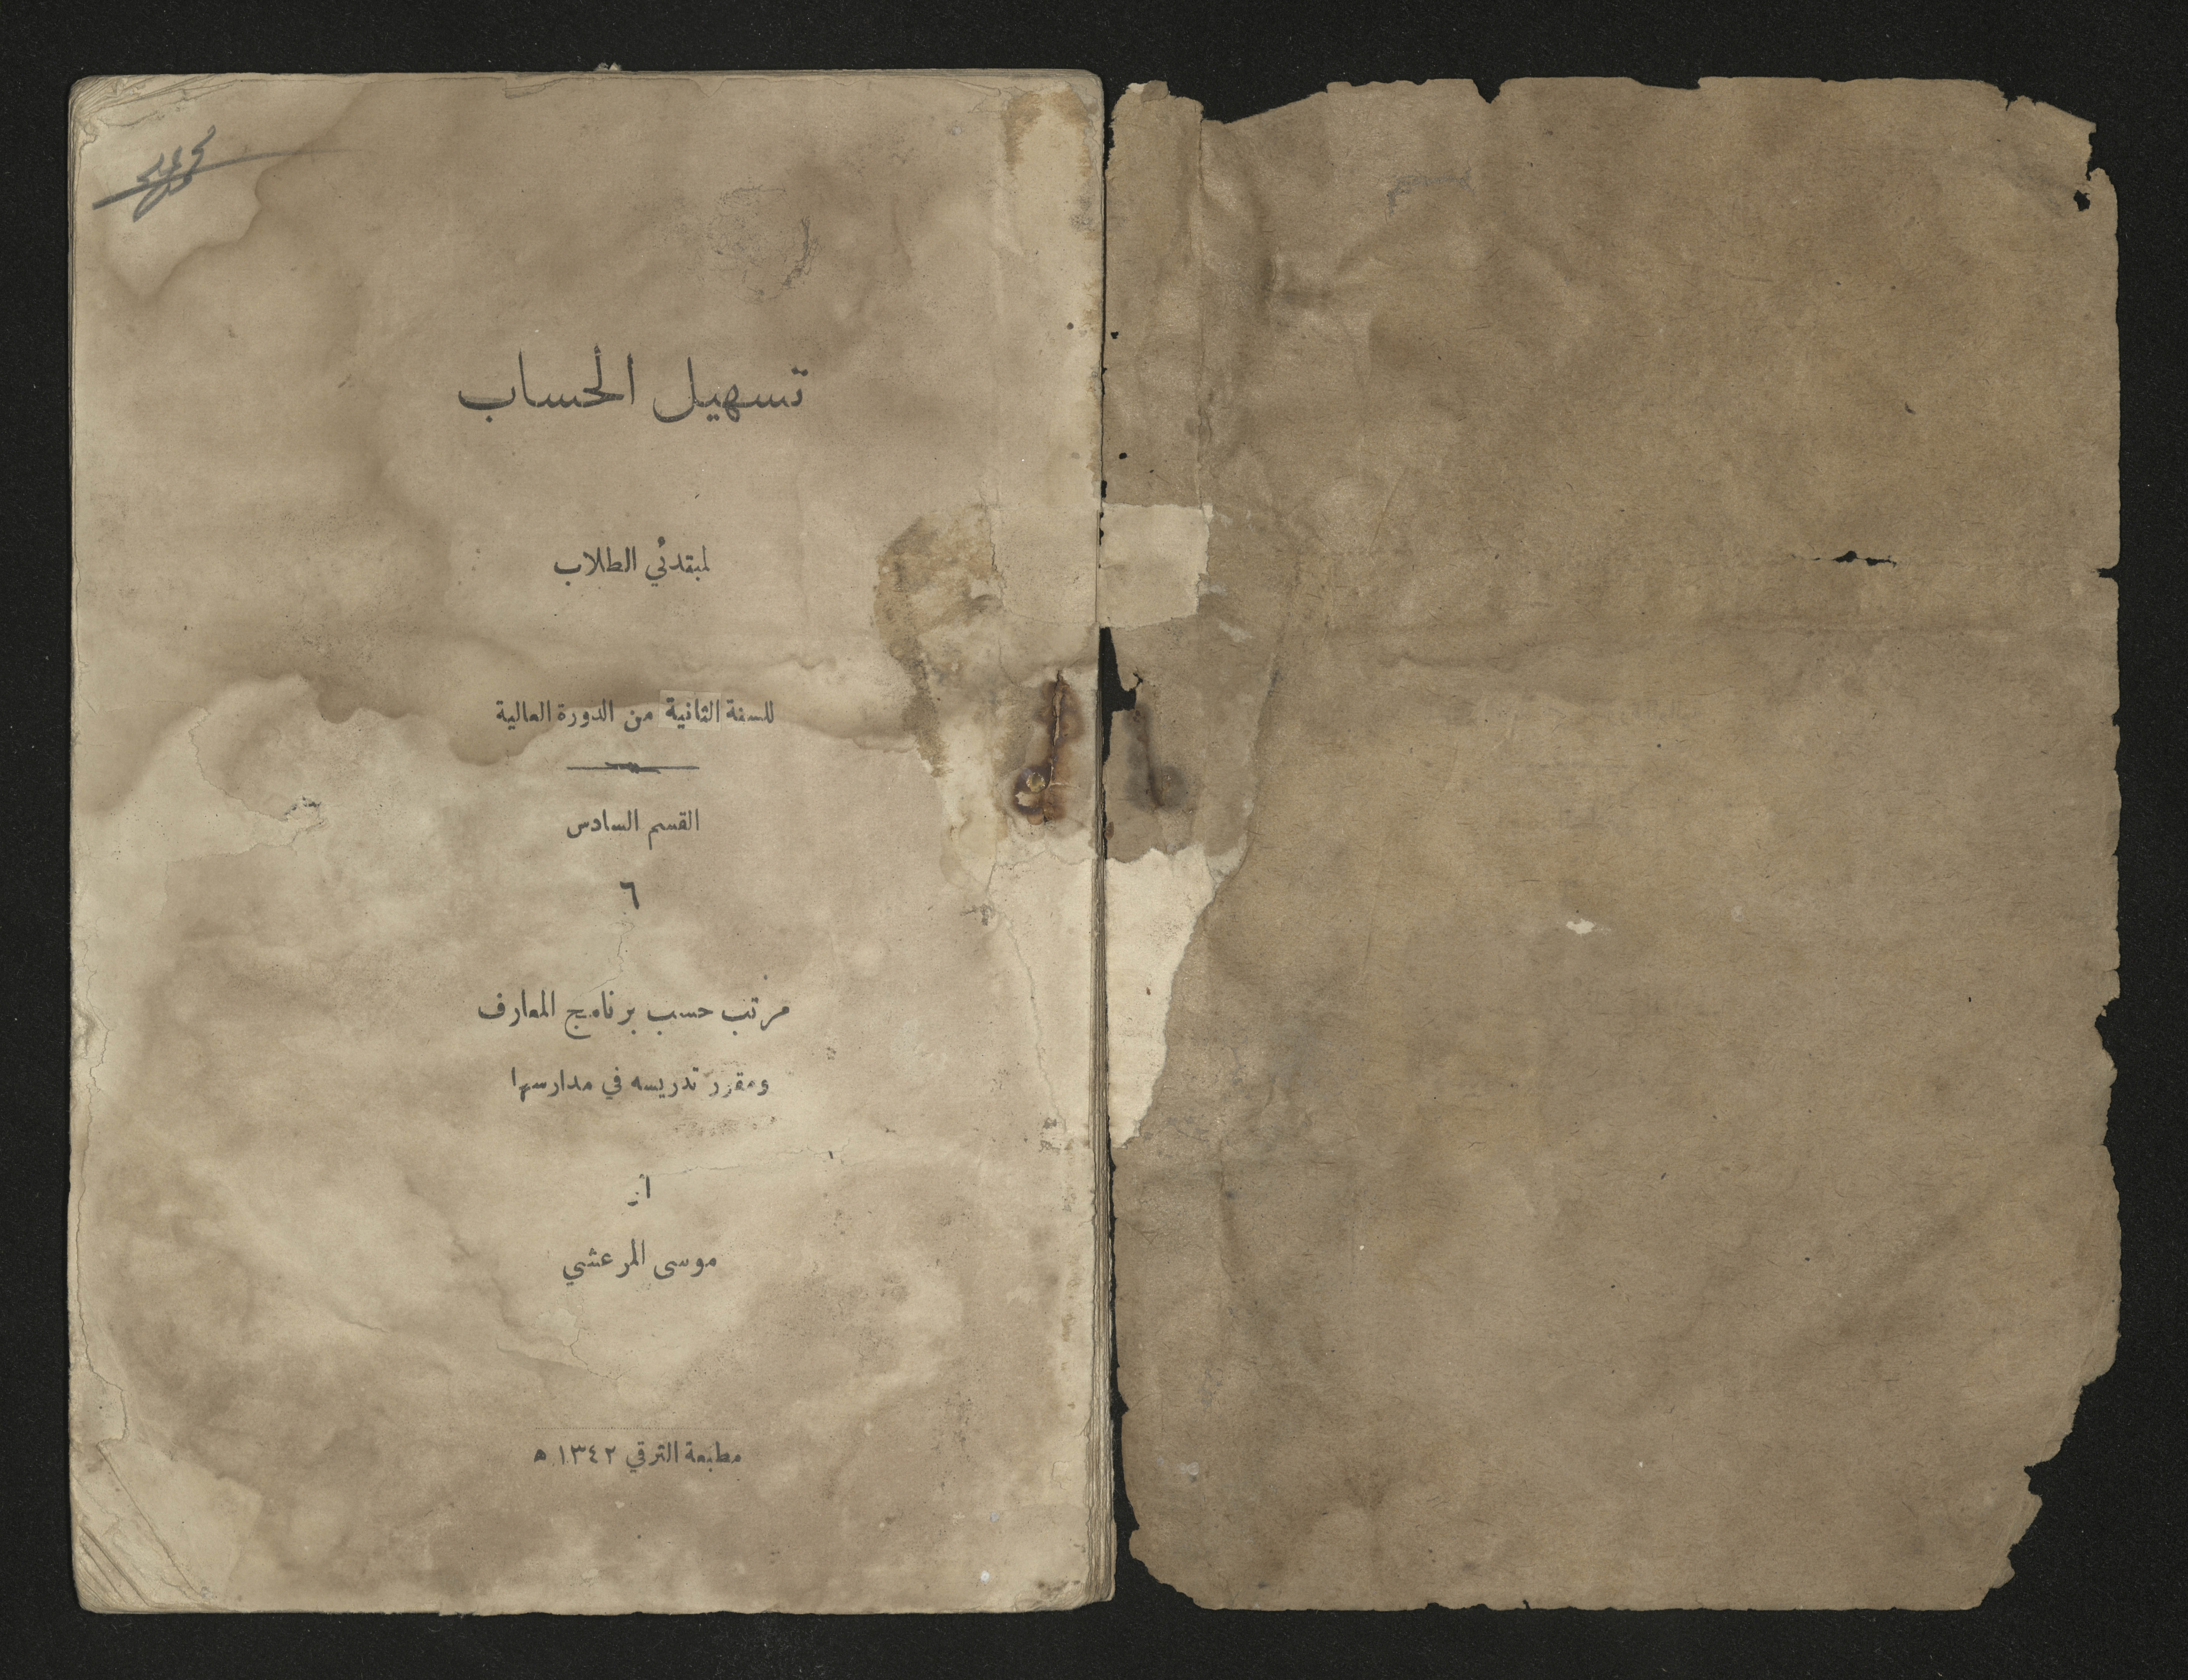 تسهيل الحساب
لمبتدئي الطلاب
للسنة الثانية من الدورة العالية
القسم السادس
٦
مرتب حسب برنامج المعارف
ومقرر تدريسه في مدارسها
أثر
موسى المرعشي
مطبعة الترقي ١٣٤٢ ه